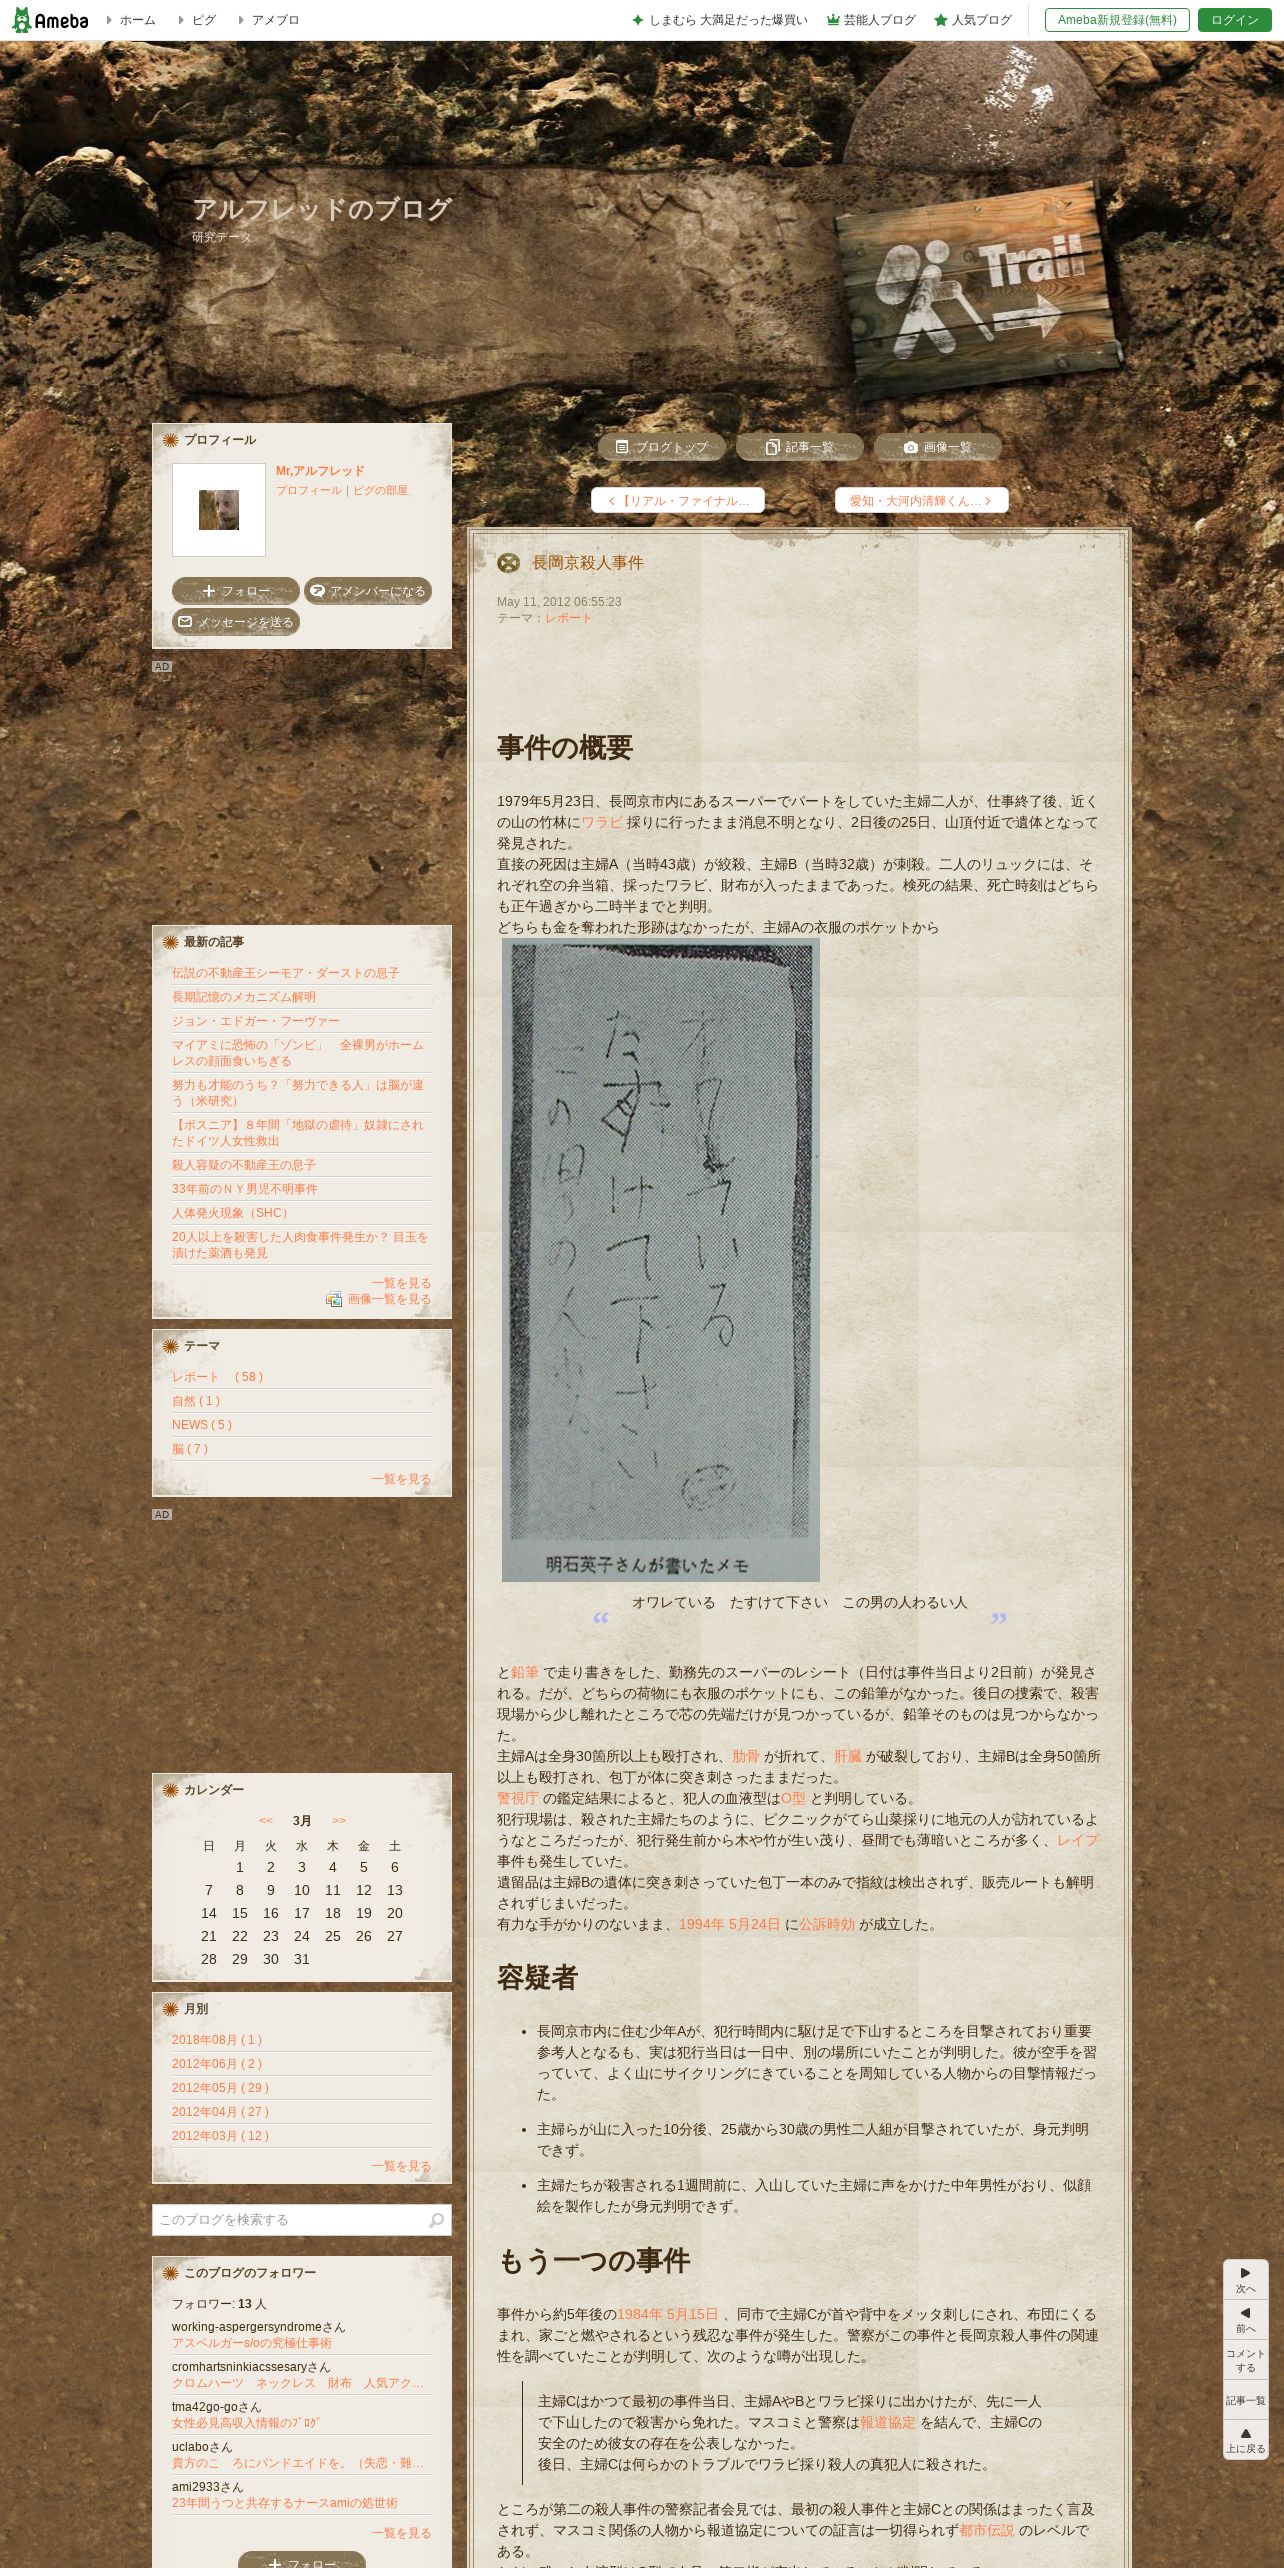 Ameba
ホーム
ピグ
アメブロ
しまむら 大満足だった爆買い
芸能人ブログ
人気ブログ
Ameba新規登録(無料)
ログイン
アルフレッドのブログ
研究データ
Trail
プロフィール
Mr,アルフレッド
プロフィール｜ピグの部屋
フォロー
アメンバーになる
メッセージを送る
AD
最新の記事
伝説の不動産王シーモア・ダーストの息子
長期記憶のメカニズム解明
ジョン・エドガー・フーヴァー
マイアミに恐怖の「ゾンビ」　全裸男がホーム
レスの顔面食いちぎる
努力も才能のうち？「努力できる人」は脳が違
う（米研究）
【ボスニア】８年間「地獄の虐待」奴隷にされ
たドイツ人女性救出
殺人容疑の不動産王の息子
33年前のＮＹ男児不明事件
人体発火現象（SHC）
20人以上を殺害した人肉食事件発生か？ 目玉を
漬けた薬酒も発見
一覧を見る
画像一覧を見る
テーマ
レポート　( 58 )
自然 ( 1 )
NEWS ( 5 )
脳 ( 7 )
一覧を見る
AD
カレンダー
<< 3月 >>
日 月 火 水 木 金 土
1 2 3 4 5 6
7 8 9 10 11 12 13
14 15 16 17 18 19 20
21 22 23 24 25 26 27
28 29 30 31
月別
2018年08月 ( 1 )
2012年06月 ( 2 )
2012年05月 ( 29 )
2012年04月 ( 27 )
2012年03月 ( 12 )
一覧を見る
このブログを検索する
このブログのフォロワー
フォロワー: 13 人
working-aspergersyndromeさん
アスペルガーs/oの究極仕事術
cromhartsninkiacssesaryさん
クロムハーツ　ネックレス　財布　人気アク…
tma42go-goさん
女性必見高収入情報のﾌﾞﾛｸﾞ
uclaboさん
貴方のこゝろにバンドエイドを。（失恋・難…
ami2933さん
23年間うつと共存するナースamiの処世術
一覧を見る
フォロー
ブログトップ
記事一覧
画像一覧
【リアル・ファイナル…
愛知・大河内清輝くん…
長岡京殺人事件
May 11, 2012 06:55:23
テーマ：レポート
事件の概要
1979年5月23日、長岡京市内にあるスーパーでパートをしていた主婦二人が、仕事終了後、近く
の山の竹林にワラビ 採りに行ったまま消息不明となり、2日後の25日、山頂付近で遺体となって
発見された。
直接の死因は主婦A（当時43歳）が絞殺、主婦B（当時32歳）が刺殺。二人のリュックには、そ
れぞれ空の弁当箱、採ったワラビ、財布が入ったままであった。検死の結果、死亡時刻はどちら
も正午過ぎから二時半までと判明。
どちらも金を奪われた形跡はなかったが、主婦Aの衣服のポケットから
オワレている
たすけて下さい
この男の人わるい人
明石英子さんが書いたメモ
“ オワレている　たすけて下さい　この男の人わるい人 ”
と鉛筆 で走り書きをした、勤務先のスーパーのレシート（日付は事件当日より2日前）が発見さ
れる。だが、どちらの荷物にも衣服のポケットにも、この鉛筆がなかった。後日の捜索で、殺害
現場から少し離れたところで芯の先端だけが見つかっているが、鉛筆そのものは見つからなかっ
た。
主婦Aは全身30箇所以上も殴打され、肋骨 が折れて、肝臓 が破裂しており、主婦Bは全身50箇所
以上も殴打され、包丁が体に突き刺さったままだった。
警視庁 の鑑定結果によると、犯人の血液型はO型 と判明している。
犯行現場は、殺された主婦たちのように、ピクニックがてら山菜採りに地元の人が訪れているよ
うなところだったが、犯行発生前から木や竹が生い茂り、昼間でも薄暗いところが多く、レイプ
事件も発生していた。
遺留品は主婦Bの遺体に突き刺さっていた包丁一本のみで指紋は検出されず、販売ルートも解明
されずじまいだった。
有力な手がかりのないまま、1994年 5月24日 に公訴時効 が成立した。
容疑者
• 長岡京市内に住む少年Aが、犯行時間内に駆け足で下山するところを目撃されており重要
参考人となるも、実は犯行当日は一日中、別の場所にいたことが判明した。彼が空手を習
っていて、よく山にサイクリングにきていることを周知している人物からの目撃情報だっ
た。
• 主婦らが山に入った10分後、25歳から30歳の男性二人組が目撃されていたが、身元判明
できず。
• 主婦たちが殺害される1週間前に、入山していた主婦に声をかけた中年男性がおり、似顔
絵を製作したが身元判明できず。
もう一つの事件
事件から約5年後の1984年 5月15日 、同市で主婦Cが首や背中をメッタ刺しにされ、布団にくる
まれ、家ごと燃やされるという残忍な事件が発生した。警察がこの事件と長岡京殺人事件の関連
性を調べていたことが判明して、次のような噂が出現した。
主婦Cはかつて最初の事件当日、主婦AやBとワラビ採りに出かけたが、先に一人
で下山したので殺害から免れた。マスコミと警察は報道協定 を結んで、主婦Cの
安全のため彼女の存在を公表しなかった。
後日、主婦Cは何らかのトラブルでワラビ採り殺人の真犯人に殺された。
ところが第二の殺人事件の警察記者会見では、最初の殺人事件と主婦Cとの関係はまったく言及
されず、マスコミ関係の人物から報道協定についての証言は一切得られず都市伝説 のレベルで
ある。
次へ
前へ
コメント
する
記事一覧
上に戻る